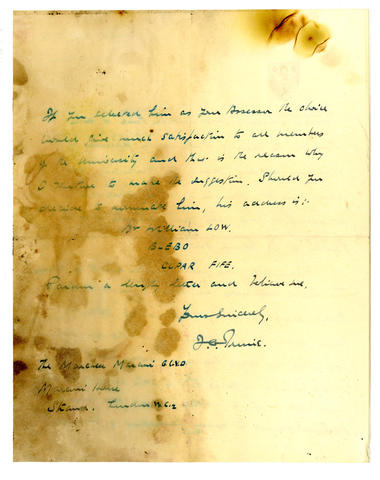 If you selected him as your Assessor the choice
would give much satisfaction to all members
of the University and that is the reason why
I venture to make the suggestion. Should you
decide to nominate him, his address is:-
Mr William LOW.
BLEBO
CUPAR FIFE.
Pardon a lengthy letter and believe me,
Yours Sincerely,
The Marchese Marconi G.C.V.O
Marconi House
Strand. London W.C.2